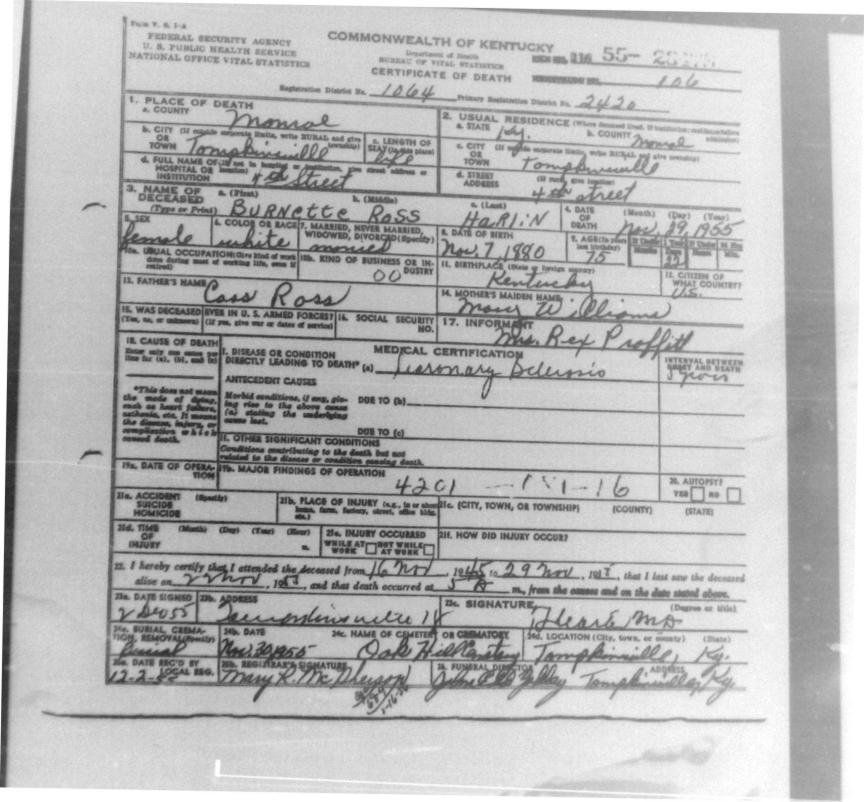 Form V. S. 1-A
FEDERAL SECURITY AGENCY
U. S. PUBLIC HEALTH SERVICE
NATIONAL OFFICE VITAL STATISTICS
COMMONWEALTH OF KENTUCKY
Department of Health
BUREAU OF VITAL STATISTICS
CERTIFICATE OF DEATH
116 55-
106
Registration District No. 1064 Primary Registration District No. 2420
1. PLACE OF DEATH
a. COUNTY Monroe
b. CITY (If outside corporate limits, write RURAL and give township)
OR TOWN Tompkinsville
c. LENGTH OF STAY (in this place) life
d. FULL NAME OF (If not in hospital or institution, give street address or location)
HOSPITAL OR INSTITUTION 4th Street
2. USUAL RESIDENCE (Where deceased lived. If institution: residence before admission)
a. STATE Ky. b. COUNTY Monroe
c. CITY (If outside corporate limits, write RURAL and give township)
OR TOWN Tompkinsville
d. STREET ADDRESS (If rural, give location)
4th street
3. NAME OF DECEASED (Type or Print)
a. (First) b. (Middle) c. (Last)
BURNETTE ROSS HARLIN
4. DATE OF DEATH (Month) (Day) (Year)
Nov. 29, 1955
5. SEX female
6. COLOR OR RACE white
7. MARRIED, NEVER MARRIED, WIDOWED, DIVORCED (Specify) married
8. DATE OF BIRTH Nov. 7, 1880
9. AGE (In years last birthday) 75
22
10a. USUAL OCCUPATION (Give kind of work done during most of working life, even if retired)
10b. KIND OF BUSINESS OR INDUSTRY 00
11. BIRTHPLACE (State or foreign country) Kentucky
12. CITIZEN OF WHAT COUNTRY? U.S.
13. FATHER'S NAME Cass Ross
14. MOTHER'S MAIDEN NAME Mary Williams
15. WAS DECEASED EVER IN U. S. ARMED FORCES?
(Yes, no, or unknown) (If yes, give war or dates of service)
16. SOCIAL SECURITY NO.
17. INFORMANT Mrs. Rex Proffitt
18. CAUSE OF DEATH
Enter only one cause per line for (a), (b), and (c)
MEDICAL CERTIFICATION
I. DISEASE OR CONDITION
DIRECTLY LEADING TO DEATH* (a) Coronary Sclerosis
INTERVAL BETWEEN ONSET AND DEATH
5 years
ANTECEDENT CAUSES
*This does not mean the mode of dying, such as heart failure, asthenia, etc. It means the disease, injury, or complication which caused death.
Morbid conditions, if any, giving rise to the above cause (a) stating the underlying cause last.
DUE TO (b)
DUE TO (c)
II. OTHER SIGNIFICANT CONDITIONS
Conditions contributing to the death but not related to the disease or condition causing death.
19a. DATE OF OPERATION
19b. MAJOR FINDINGS OF OPERATION
4201
20. AUTOPSY?
YES NO
21a. ACCIDENT SUICIDE HOMICIDE (Specify)
21b. PLACE OF INJURY (e.g., in or about home, farm, factory, street, office bldg., etc.)
21c. (CITY, TOWN, OR TOWNSHIP) (COUNTY) (STATE)
21d. TIME OF INJURY (Month) (Day) (Year) (Hour) m.
21e. INJURY OCCURRED
WHILE AT WORK NOT WHILE AT WORK
21f. HOW DID INJURY OCCUR?
22. I hereby certify that I attended the deceased from 16 Nov, 1945 to 29 Nov, 19 , that I last saw the deceased
alive on 22 Nov, 19 , and that death occurred at 5 A m., from the causes and on the date stated above.
23a. DATE SIGNED 2 Dec 55
23b. ADDRESS Tompkinsville
23c. SIGNATURE (Degree or title)
MD
24a. BURIAL, CREMATION, REMOVAL (Specify) Burial
24b. DATE Nov. 30, 1955
24c. NAME OF CEMETERY OR CREMATORY Oak Hill Cemetery
24d. LOCATION (City, town, or county) (State)
Tompkinsville, Ky.
25a. DATE REC'D BY LOCAL REG. 12-2-55
25b. REGISTRAR'S SIGNATURE Mary R. McPherson
26. FUNERAL DIRECTOR ADDRESS
Tompkinsville, Ky